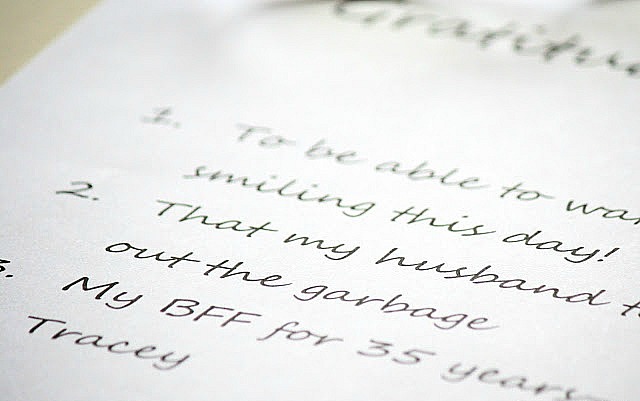 Gratitu
1. To be able to wa
smiling this day!
2. That my husband t
out the garbage
3. My BFF for 35 years-
Tracey